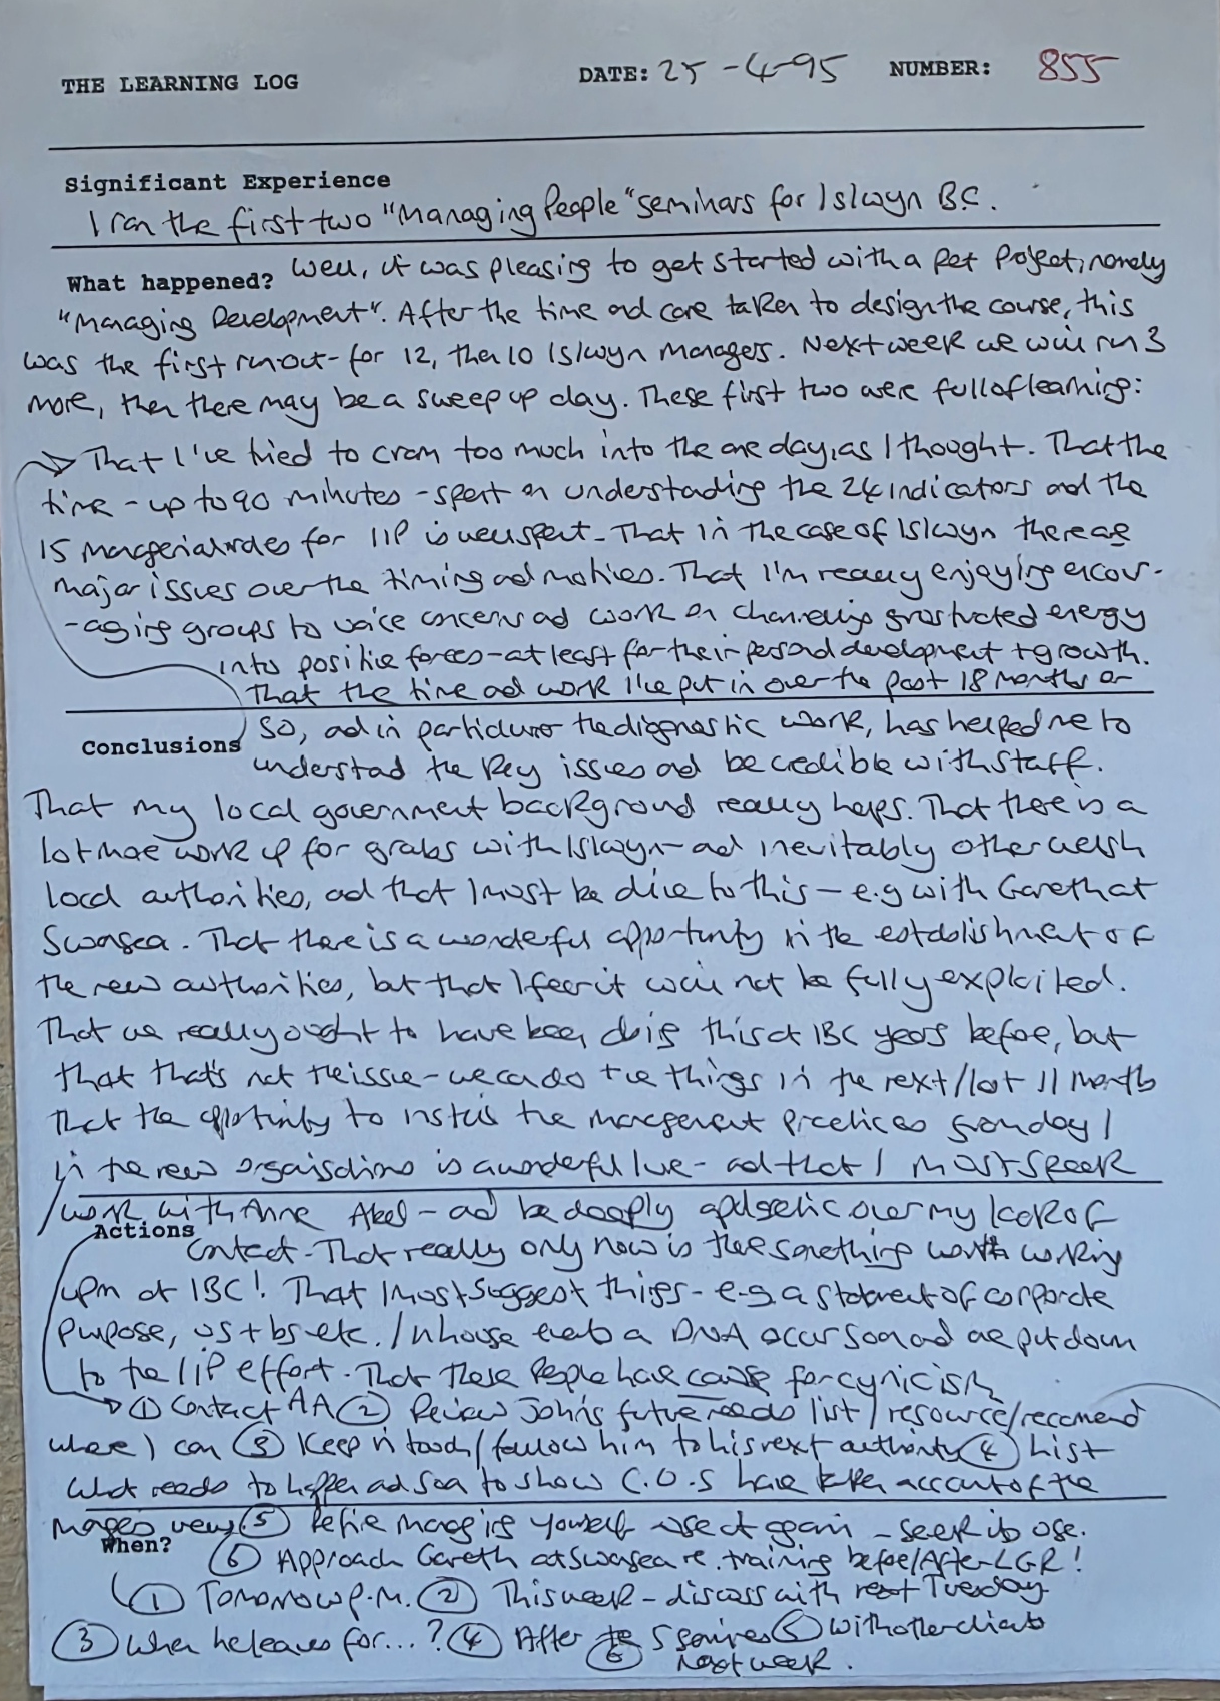 THE LEARNING LOG DATE: 25-4-95 NUMBER: 855
Significant Experience
I ran the first two "Managing People" seminars for Islwyn BC.
What happened? Well, it was pleasing to get started with a pet project, namely
"Managing Development". After the time and care taken to design the course, this
was the first runout - for 12, then 10 Islwyn Managers. Next week we will run 3
more, then there may be a sweep up day. These first two were full of learning:
That I've tried to cram too much into the one day, as I thought. That the
time - up to 90 minutes - spent on understanding the 24 indicators and the
15 managerial roles for IIP is well spent - That in the case of Islwyn there are
major issues over the timing and motives. That I'm really enjoying encour-
-aging groups to voice concerns and work on channelling frustrated energy
into positive forces - at least for their personal development + growth.
That the time and work I've put in over the past 18 months or
Conclusions so, and in particular the diagnostic work, has helped me to
understand the key issues and be credible with staff.
That my local government background really helps. That there is a
lot more work up for grabs with Islwyn - and inevitably other welsh
local authorities, and that I must be alive to this - e.g with Gareth at
Swansea. That there is a wonderful opportunity in the establishment of
the new authorities, but that I fear it will not be fully exploited.
That we really ought to have been doing this at IBC years before, but
that that's not the issue - we can do the things in the next/last 11 months
That the opportunity to instil the management practices from day 1
in the new organisations is a wonderful lure - and that I must speak
/work with Anne Abel - and be deeply apologetic over my lack of
Actions contact - That really only now is there something worth working
upon at IBC! That I must suggest things - e.g. a statement of corporate
purpose, us + bs etc. / Inhouse events a DNA occur soon and are put down
to the IIP effort. That these people have cause for cynicism
① Contact AA ② Review John's future needs list / resource/recommend
where I can ③ Keep in touch / follow him to his next authority ④ List
what needs to happen and soon to show C.O.s have taken account of the
managers views ⑤ Refine managing yourself use it again - seek its use.
When? ⑥ Approach Gareth at Swansea re. training before/After LGR!
① Tomorrow P.M. ② This week - discuss with next Tuesday
③ When he leaves for...? ④ After the 5 seminars ⑤ With other clients
⑥ Next week.